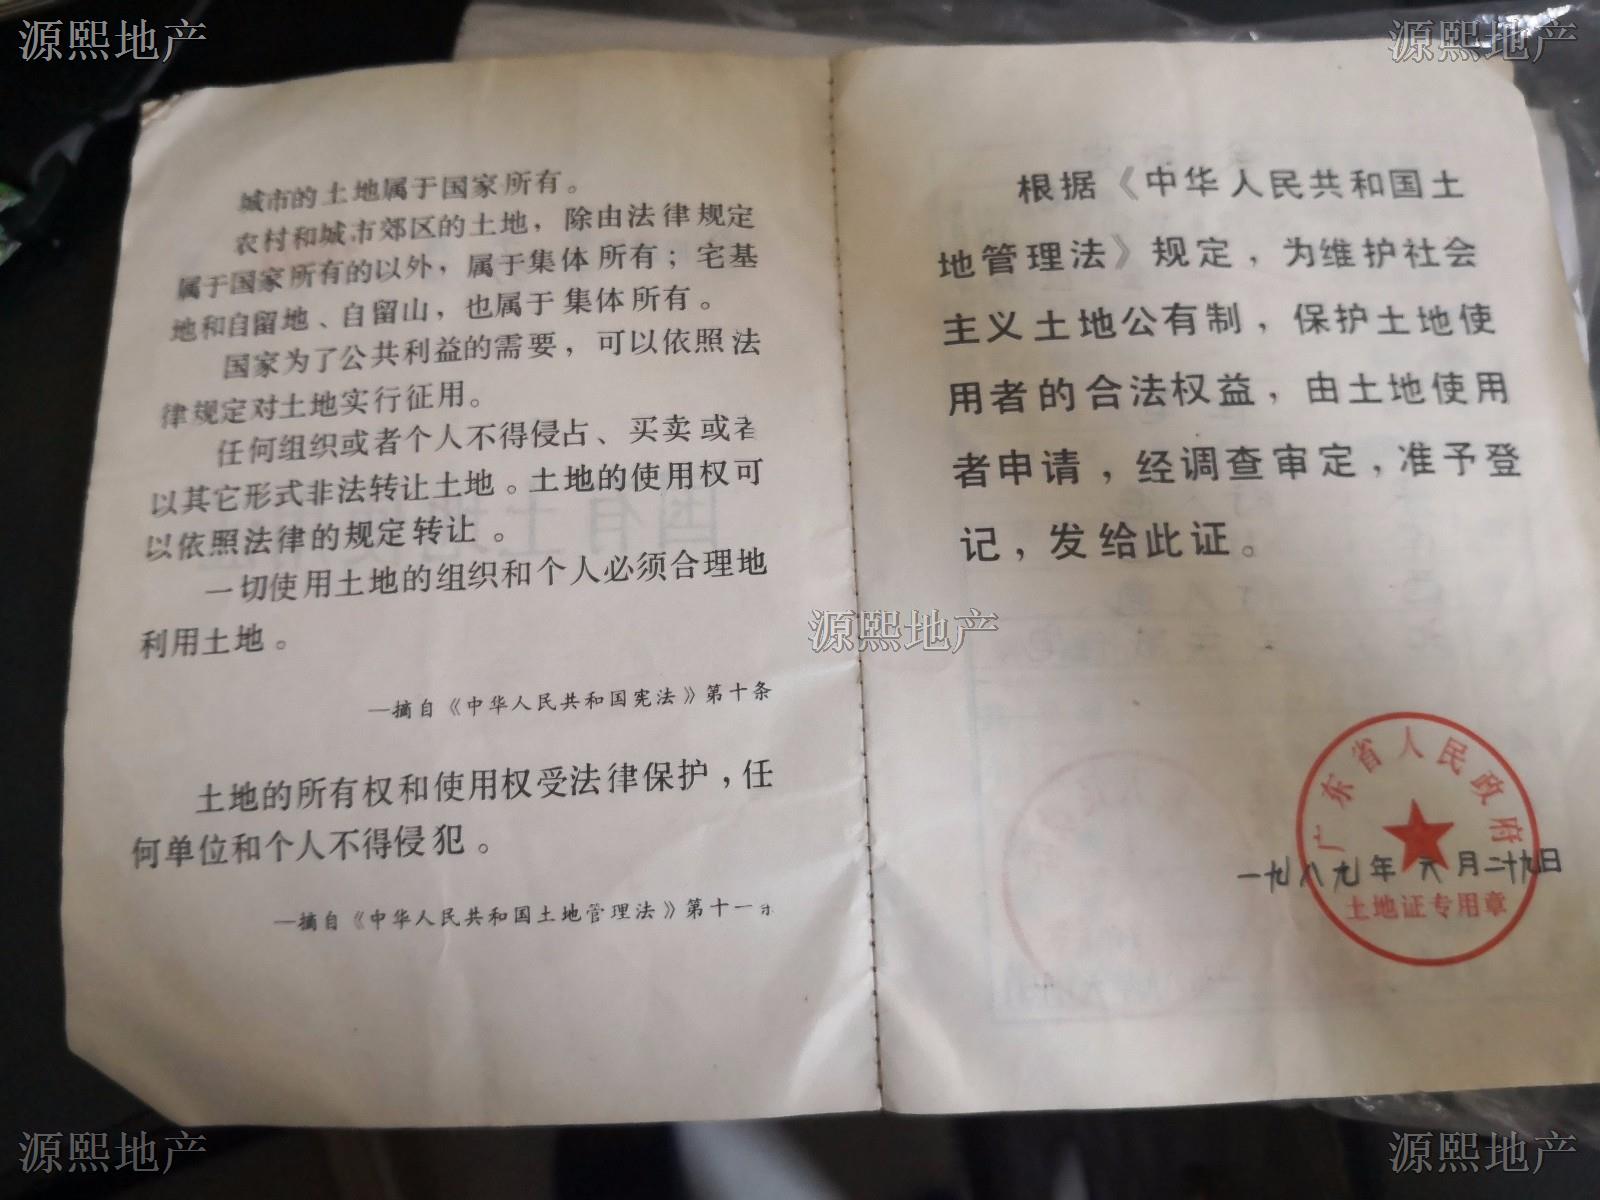 源熙地产
源熙地产
城市的土地属于国家所有。
农村和城市郊区的土地，除由法律规定
属于国家所有的以外，属于集体所有；宅基
地和自留地、自留山，也属于集体所有。
国家为了公共利益的需要，可以依照法
律规定对土地实行征用。
任何组织或者个人不得侵占、买卖或者
以其它形式非法转让土地。土地的使用权可
以依照法律的规定转让。
一切使用土地的组织和个人必须合理地
利用土地。
—摘自《中华人民共和国宪法》第十条
土地的所有权和使用权受法律保护，任
何单位和个人不得侵犯。
—摘自《中华人民共和国土地管理法》第十一条
根据《中华人民共和国土
地管理法》规定，为维护社会
主义土地公有制，保护土地使
用者的合法权益，由土地使用
者申请，经调查审定，准予登
记，发给此证。
源熙地产
广东省人民政府
一九八九年六月二十九日
土地证专用章
源熙地产
源熙地产